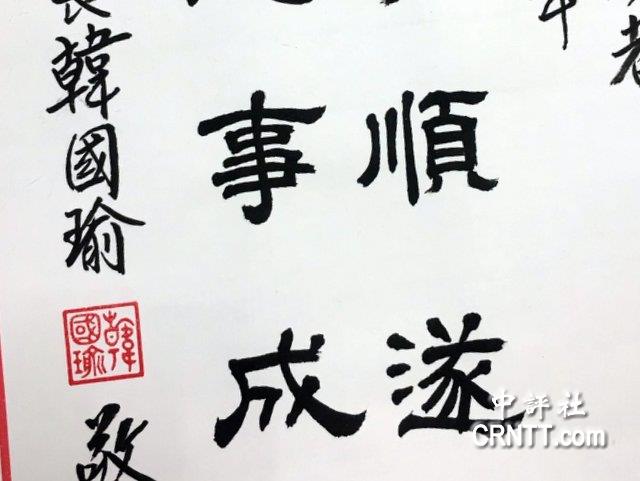 者
順遂
事成
韓國瑜
敬
韓國瑜
中評社
CRNTT.com